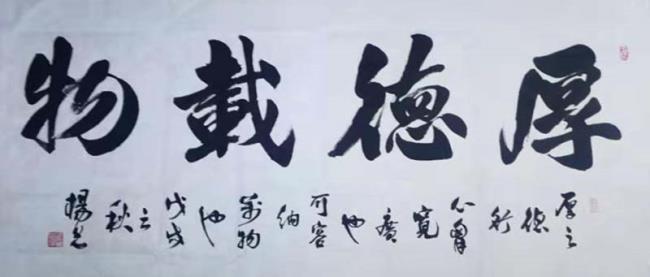 厚德載物
厚之德行心胸寬廣也可容納萬物也戊戌之秋楊